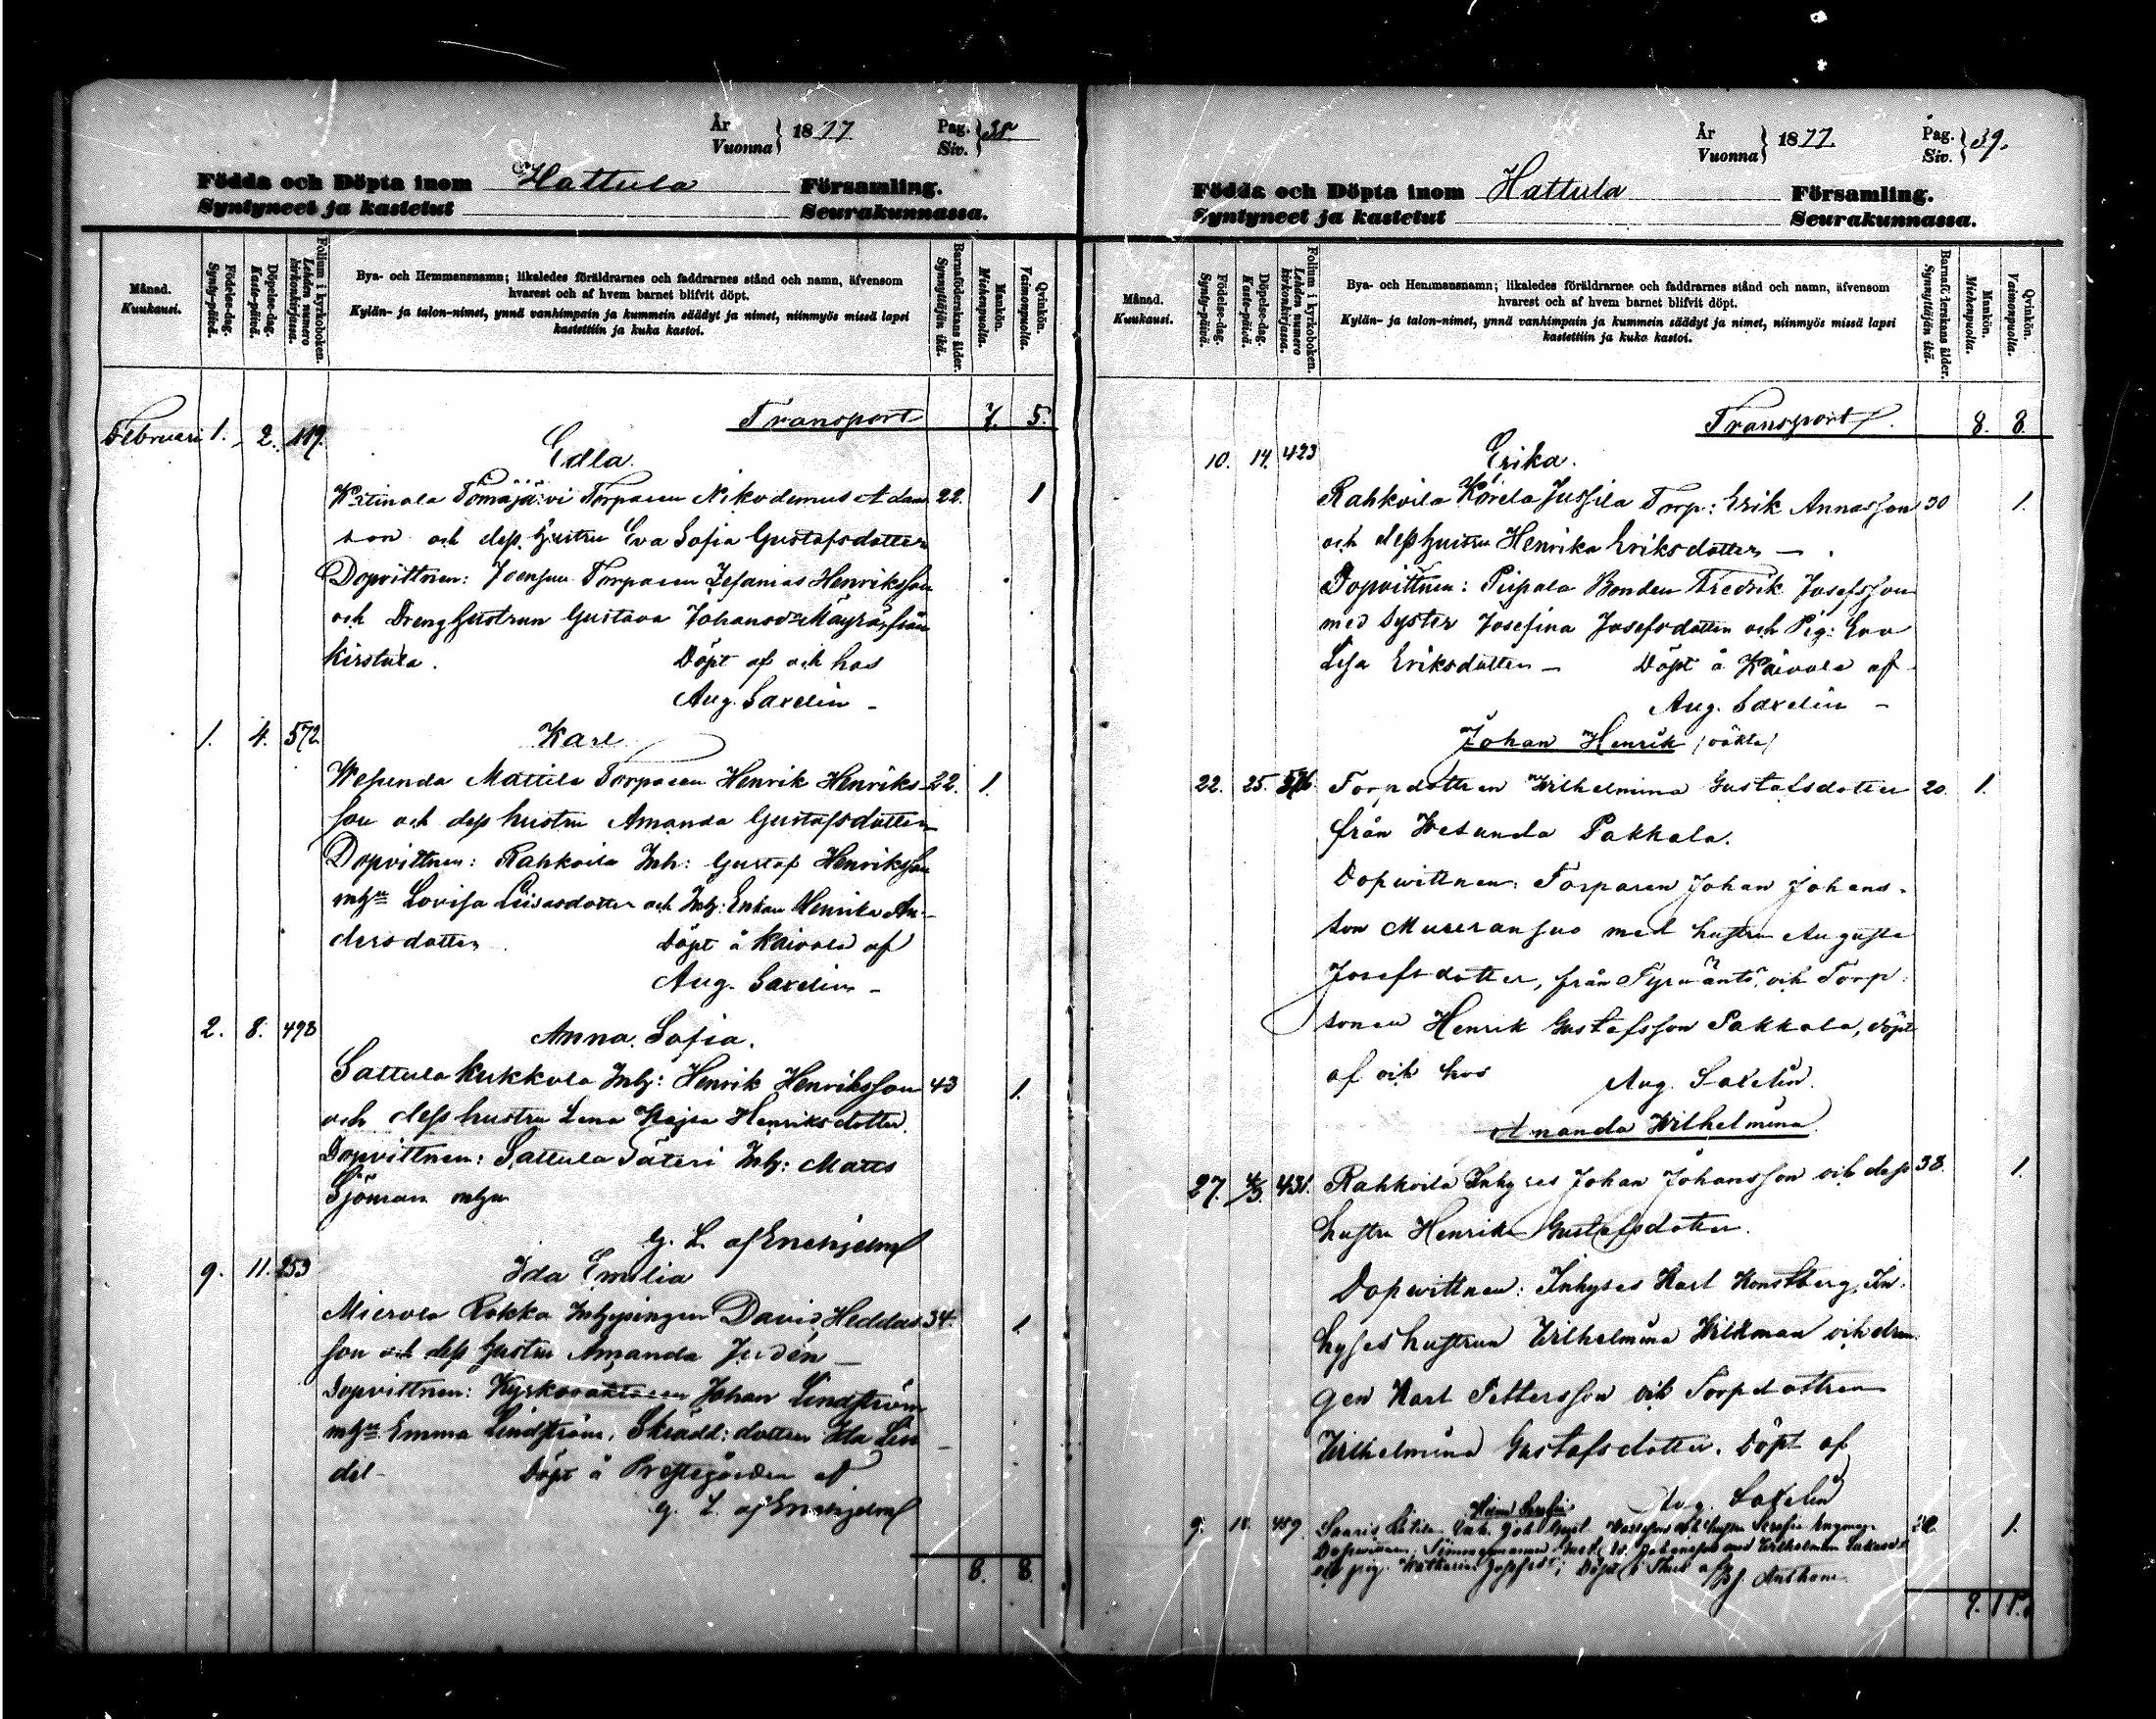 År
Vuonna } 1877. Pag.
Siv. } 38.
Födda och Döpta inom Hattula Församling.
Syntyneet ja kastetut Seurakunnassa.
Månad.
Kuukausi.
Födelse-dag.
Synty-päivä.
Döpelse-dag.
Kaste-päivä.
Folium i kyrkoboken.
Lehden numero
kirkonkirjassa.
Bya- och Hemmansnamn; likaledes föräldrarnes och faddrarnes stånd och namn, äfvensom
hvarest och af hvem barnet blifvit döpt.
Kylän- ja talon-nimet, ynnä vanhimpain ja kummein säädyt ja nimet, niinmyös missä lapsi
kastettiin ja kuka kastoi.
Barnaföderskans ålder.
Synnyttäjän ikä.
Mankön.
Miehenpuolia.
Qvinkön.
Vaimonpuolia.
Transport 7. 5.
Februari 1. 2. 119.
Edla.
Ketinala Tömäjärvi Torparen Nikodemus Adams 22. 1
son och dess hustru Eva Sofia Gustafsdotter
Dopvittnen: Joensuu Torparen Zefanias Henriksson
och Dreng hustrun Gustava Johansd. Mäyrä, från
Kirstula. Döpt af och hos
Aug. Saxelin -
1. 4. 572
Karl.
Wesunda Mattila Torparen Henrik Henriks- 22. 1.
son och dess hustru Amanda Gustafsdotter
Dopvittnen: Rahkoila Inh: Gustaf Henriksson
mhu Lovisa Liisasdotter och Inh: Enkan Henrika An-
dersdotter. Döpt å Kaivola af
Aug. Saxelin -
2. 8. 498
Anna Sofia.
Sattula Kukkola Inh: Henrik Henriksson 43 1.
och dess hustru Lena Kajsa Henriksdotter.
Dopvittnen: Sattula Säteri Inh: Matts
Sjöman mhu
G. L. af Enehjelm
9. 11. 253
Ida Emilia
Mierola Rokka Inhysingen David Heddas 34. 1.
son och dess hustru Amanda Judén -
Dopvittnen: Kyrkovaktaren Johan Lindström
mhu Emma Lindström, Skrädd: dotter Ida Lin-
del - Döpt å Prestgården af
G. L. af Enehjelm
8. 8.
År
Vuonna } 1877. Pag.
Siv. } 39.
Födda och Döpta inom Hattula Församling.
Syntyneet ja kastetut Seurakunnassa.
Månad.
Kuukausi.
Födelse-dag.
Synty-päivä.
Döpelse-dag.
Kaste-päivä.
Folium i kyrkoboken.
Lehden numero
kirkonkirjassa.
Bya- och Hemmansnamn; likaledes föräldrarnes och faddrarnes stånd och namn, äfvensom
hvarest och af hvem barnet blifvit döpt.
Kylän- ja talon-nimet, ynnä vanhimpain ja kummein säädyt ja nimet, niinmyös missä lapsi
kastettiin ja kuka kastoi.
Barnaföderskans ålder.
Synnyttäjän ikä.
Mankön.
Miehenpuolia.
Qvinkön.
Vaimonpuolia.
Transport. 8. 8.
10. 14. 423
Erika.
Rahkoila Jussila Torp: Erik Annasson 30 1.
och dess hustru Henrika Eriksdotter -
Dopvittnen: Pirpala Bonden Fredrik Josefsson
med syster Josefina Josefsdotter och Pig: Eva
Lisa Eriksdotter - Döpt å Kaivola af
Aug. Saxelin -
Johan Henrik (oäkta)
22. 25. 576. Torpdottren Wilhelmina Gustafsdotter 20. 1.
från Wesunda Pakkala.
Dopwittnen: Torparen Johan Johans-
son med hustru Augusta
Josefsdotter, från Tyrväntö, och Torp:
sonen Henrik Gustafsson Pakkala, döpt
af och hos Aug. Saxelin.
Amanda Wilhelmina
27. 4/3. 431. Rahkoila Inhyses Johan Johansson och dess 38. 1.
hustru Henrika Gustafsdotter.
Dopwittnen: Inhyses Karl Konstberg, In-
hyses hustrun Wilhelmina Wilkman och dren-
gen Karl Pettersson och Torpdottren
Wilhelmina Gustafsdotter. Döpt af
Aug. Saxelin
9. 11. 459. Saaris Inh. Joh. hustru Serafia 1.
Dopwittnen: Timmermannen och Wilhelmina
och pig. Katharina Josefsd; Döpt af
9. 11.